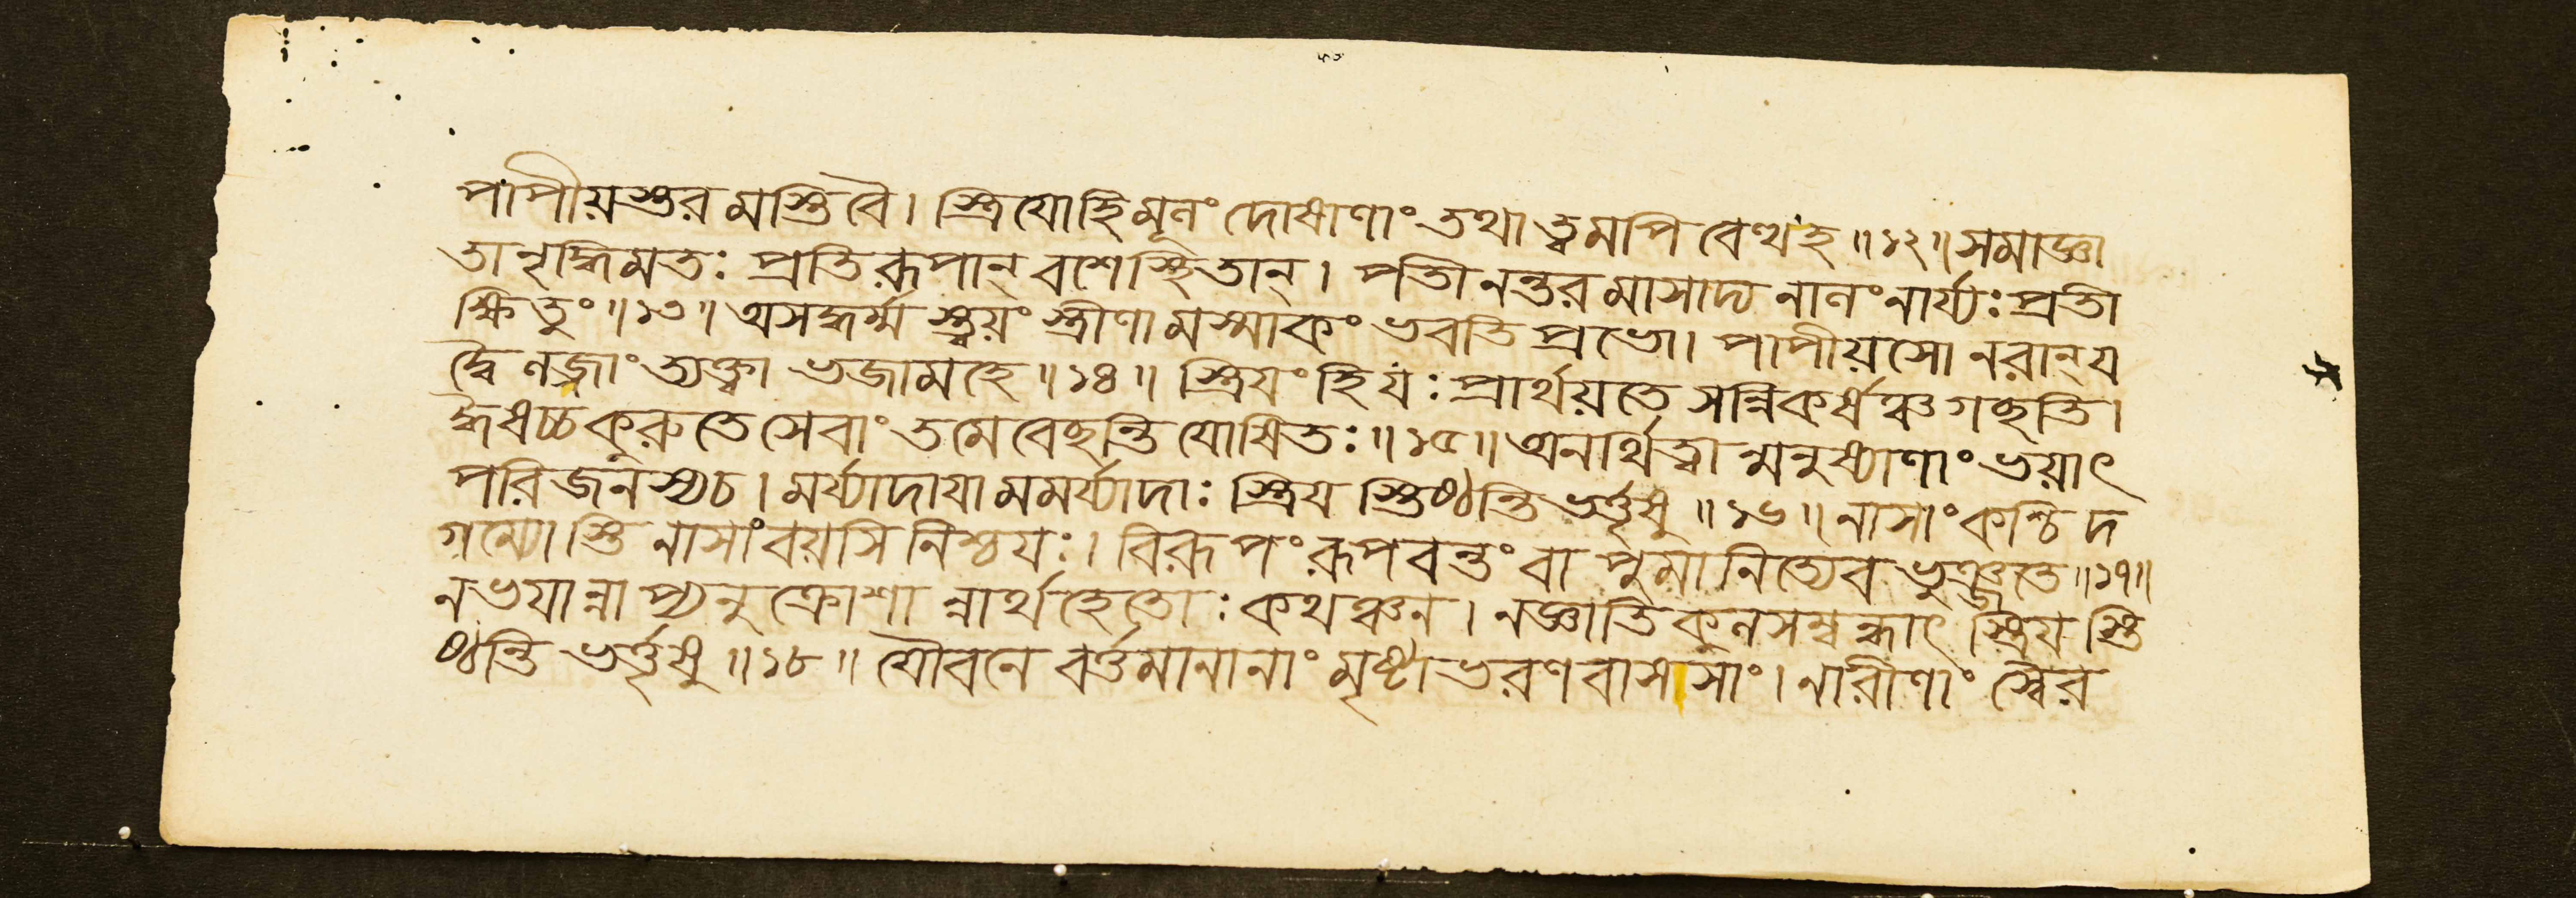 পাপীয়স্তরমস্তি বৈ। স্ত্রিয়োহি মূলং দোষাণাং তথা ত্বমপি বেত্থ হ॥১২॥ সমাজ্ঞা
তানৃদ্ধিমতঃ প্রতিরূপান্ বশেস্থিতান্। পতীনন্তরমাসাদ্য নালং নার্য্যঃ প্রতী
ক্ষিতুং॥১৩॥ অসদ্ধর্ম্মস্ত্বয়ং স্ত্রীণামস্মাকং ভবতি প্রভো। পাপীয়সো নরান্ য
দ্বৈ লজ্জাং ত্যক্ত্বা ভজামহে॥১৪॥ স্ত্রিযং হি যঃ প্রার্থয়তে সন্নিকর্ষঞ্চ গচ্ছতি।
ঈষচ্চ কুরুতে সেবাং তমেবেচ্ছন্তি যোষিতঃ॥১৫॥ অনর্থিত্বান্মনুষ্যাণাং ভয়াৎ
পরিজনস্য চ। মর্য্যাদাযামমর্য্যাদাঃ স্ত্রিযস্তিষ্ঠন্তি ভর্ত্তৃষু॥১৬॥ নাসাং কশ্চিদ
গম্যোস্তি নাসাং বয়সি নিশ্চযঃ। বিরূপং রূপবন্তং বা পুমানিত্যেব ভুঞ্জতে॥১৭॥
ন ভযান্নাপ্যনুক্রোশান্নার্থহেতোঃ কথঞ্চন। ন জ্ঞাতিকুলসম্বন্ধাৎ স্ত্রিযস্তি
ষ্ঠন্তি ভর্ত্তৃষু॥১৮॥ যৌবনে বর্ত্তমানানাং মৃষ্টাভরণবাসসাং। নারীণাং স্বৈর